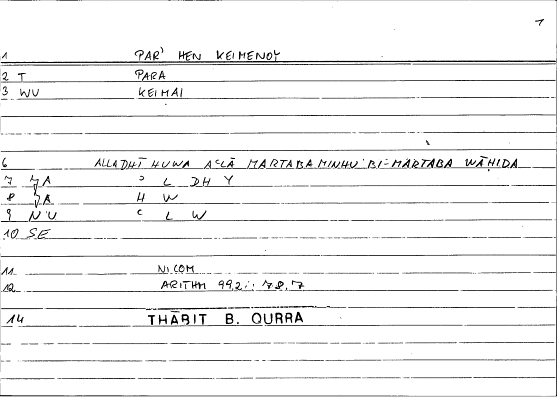 1
1 PAR' HEN KEIMENOY
2 T PARA
3 WV KEIMAI
6 ALLADHĪ HUWA AʿLĀ MARTABA MINHU BI-MARTABA WĀḤIDA
7 ʾ L DH Y
8 H W
9 N'U ʿ L W
10 SE
11 NICOM
12 ARITHM 99,2 : 78,7
14 THĀBIT B. QURRA